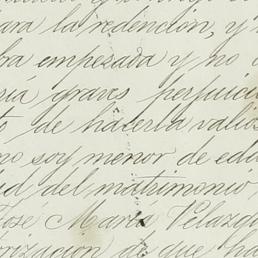 para la redención, y
bra empezada y no
ría graves perjuici
to de hacerla valios
no soy menor de eda
ud del matrimonio,
José María Velazq
orización de que ha